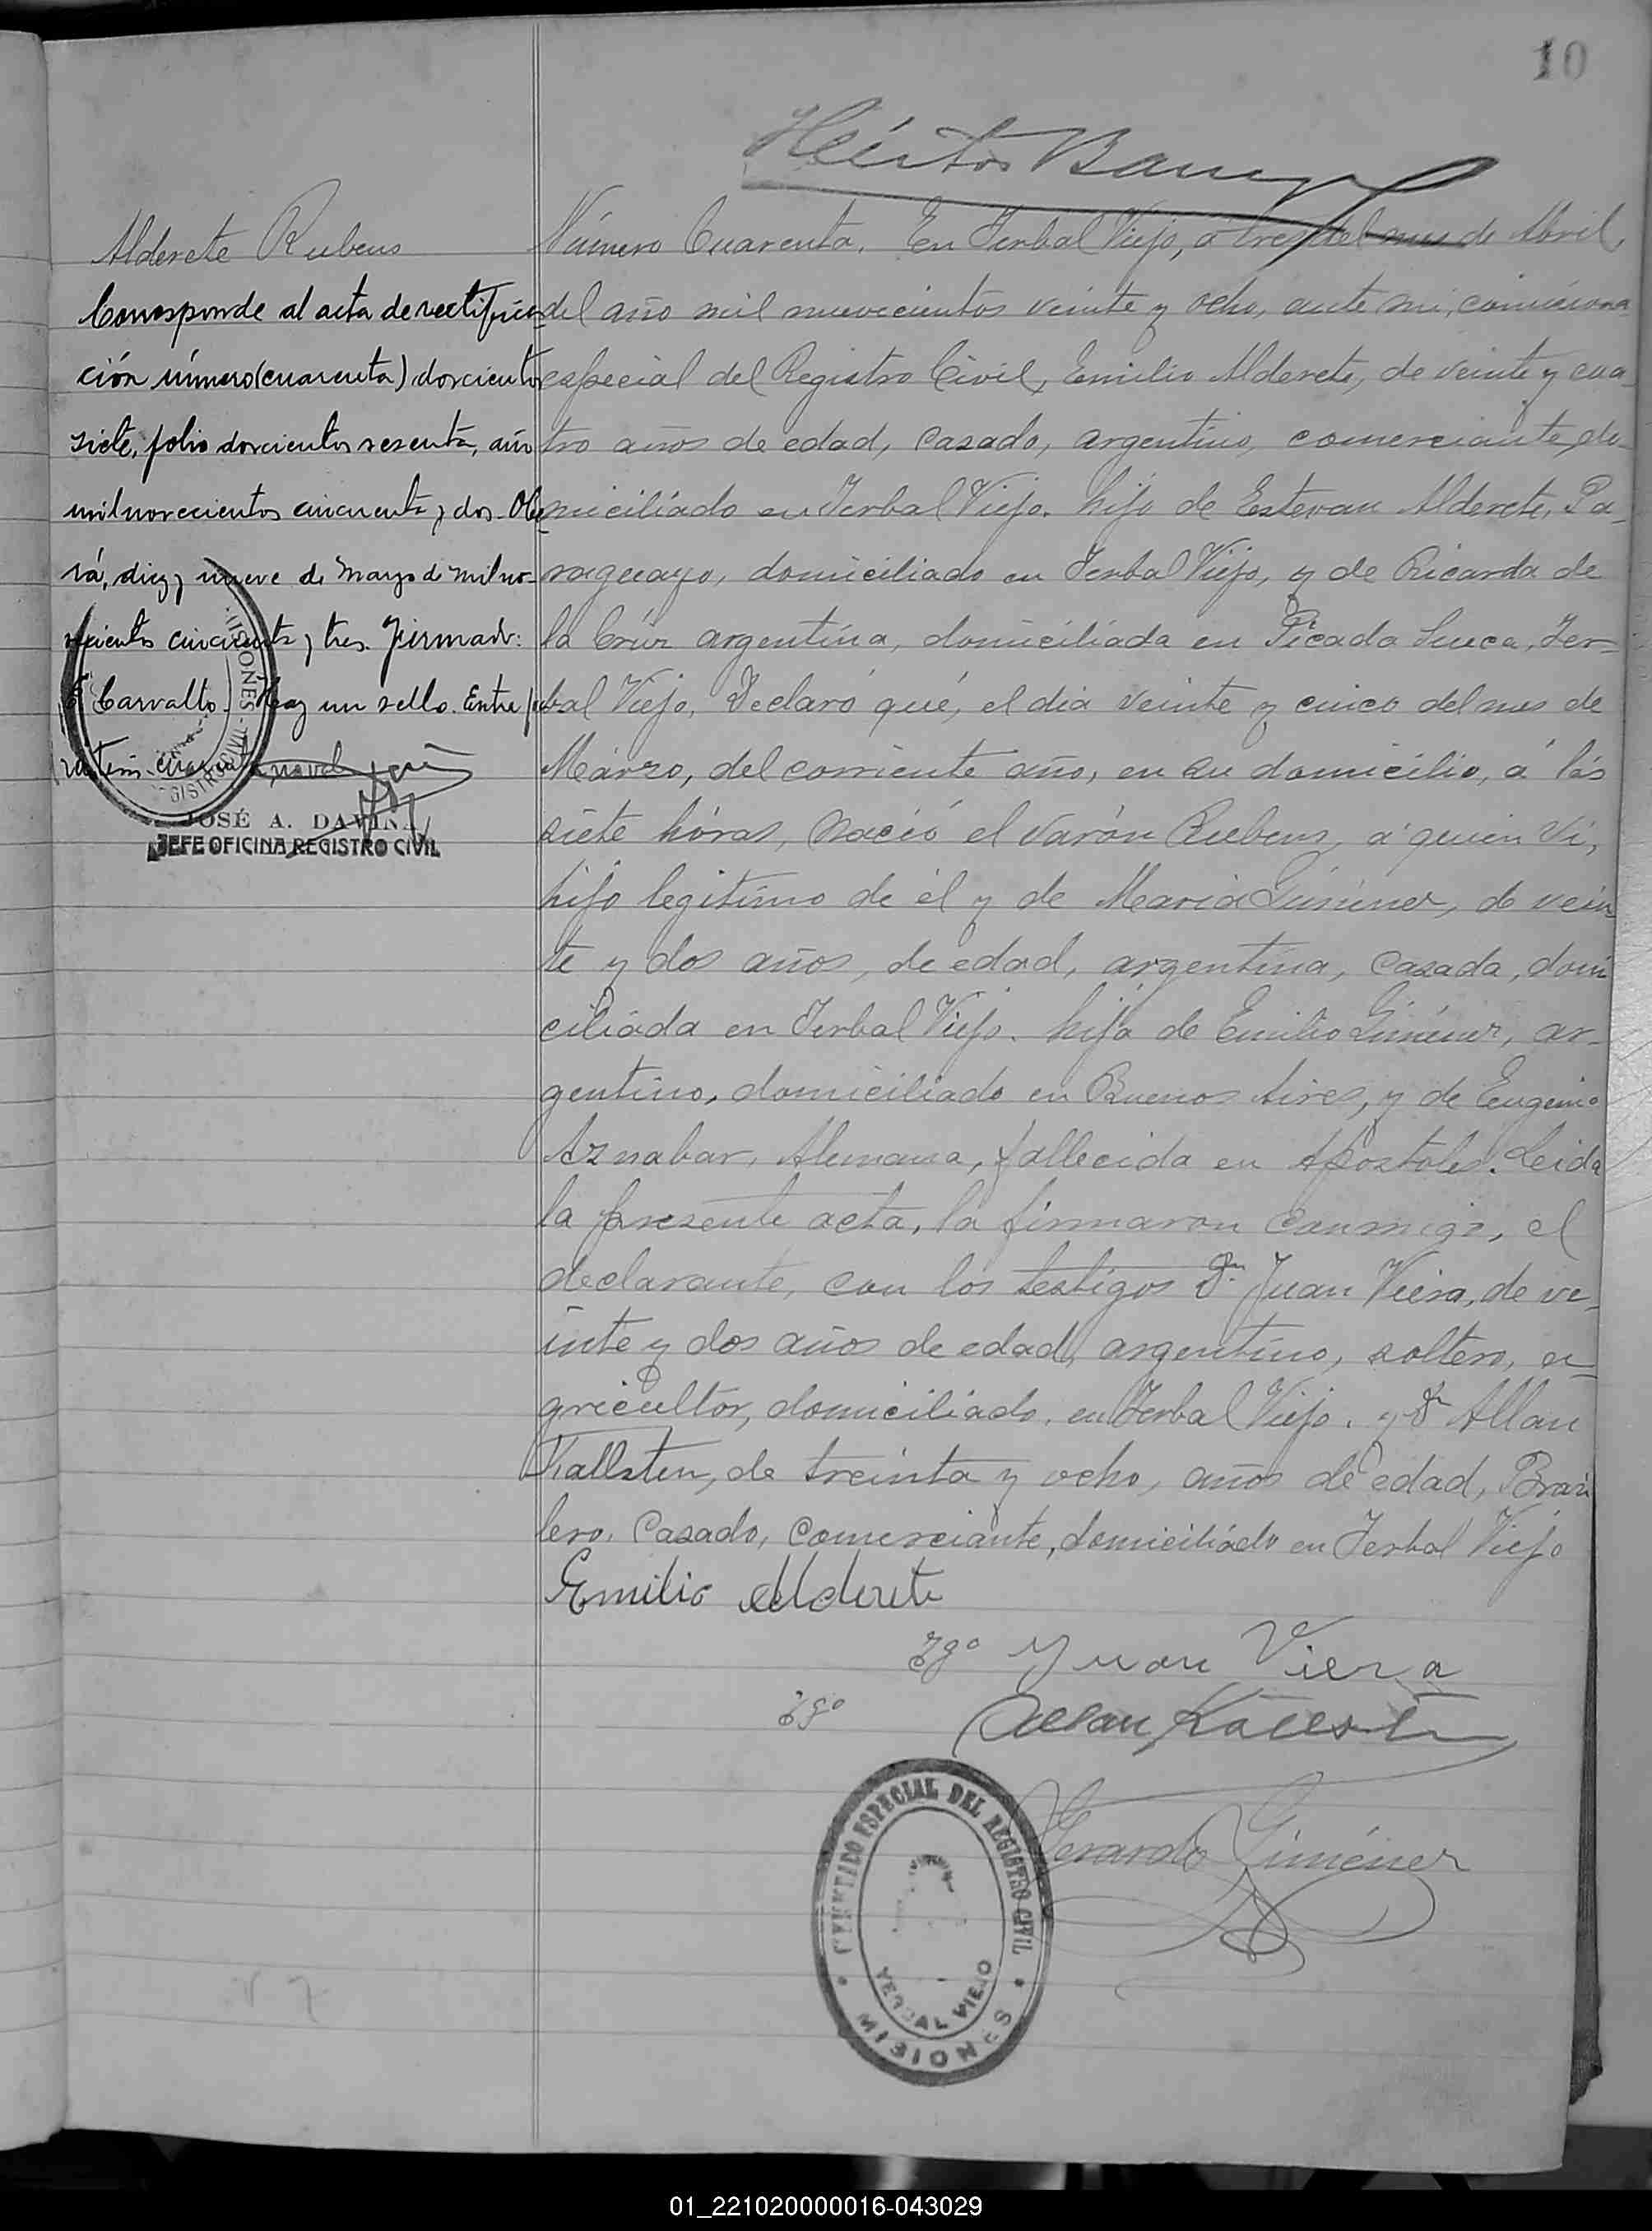 10
Alderete Rubens
Corresponde al acta de rectifica-
ción número (cuarenta) doscientos
siete, folio doscientos sesenta, año
mil novecientos cincuenta y dos. Obe-
rá, diez y nueve de Mayo de mil no-
vecientos cincuenta y tres. Firmado:
Carvallo. Hay un sello. Entre pa-
réntesis: cuarenta, no vale
MISIONES
JOSÉ A. DAVIÑA
JEFE OFICINA REGISTRO CIVIL
Número Cuarenta. En Yerbal Viejo, a tres del mes de Abril,
del año mil nuevecientos veinte y ocho, ante mi, comisiona
especial del Registro Civil, Emilio Alderete, de veinte y cua-
tro años de edad, casado, argentino, comerciante, do-
miciliádo en Yerbal Viejo. hijo de Estevan Alderete, Pa-
raguayo, domiciliado en Yerbal Viejo, y de Ricarda de
la Crúz argentina, domiciliada en Picada Sueca, Yer-
bal Viejo, Declaró qué, el día veinte y cinco del mes de
Márzo, del corriente año, en su domicilio, á las
siete hóras, nació el varón Rubens, á quien ví,
hijo legitimo de él y de María Giménez, de vein
te y dos años, de edad, argentina, casada, domi
ciliáda en Yerbal Viejo. hija de Emilio Giménez, ar-
gentino, domiciliado en Buenos Aires, y de Eugenia
Aznabar, Alemana, fallecida en Apóstoles. Leida
la presente acta, la firmaron conmigo, el
declarante, con los testigos Dn Juan Viera, de ve-
inte y dos años de edad, argentino, soltero, a-
gricultor, domiciliado en Yerbal Viejo. y Dn Allan
Kallsten, de treinta y ocho, años de edad, Brasi
lero, Casado, comerciante, domiciliádo en Yerbal Viejo
Emilio Alderete
Tgo Juan Viera
Tgo Allan Kallsten
Gerardo Giménez
ESPECIAL DEL REGISTRO CIVIL
YERBAL VIEJO
MISIONES
01_221020000016-043029